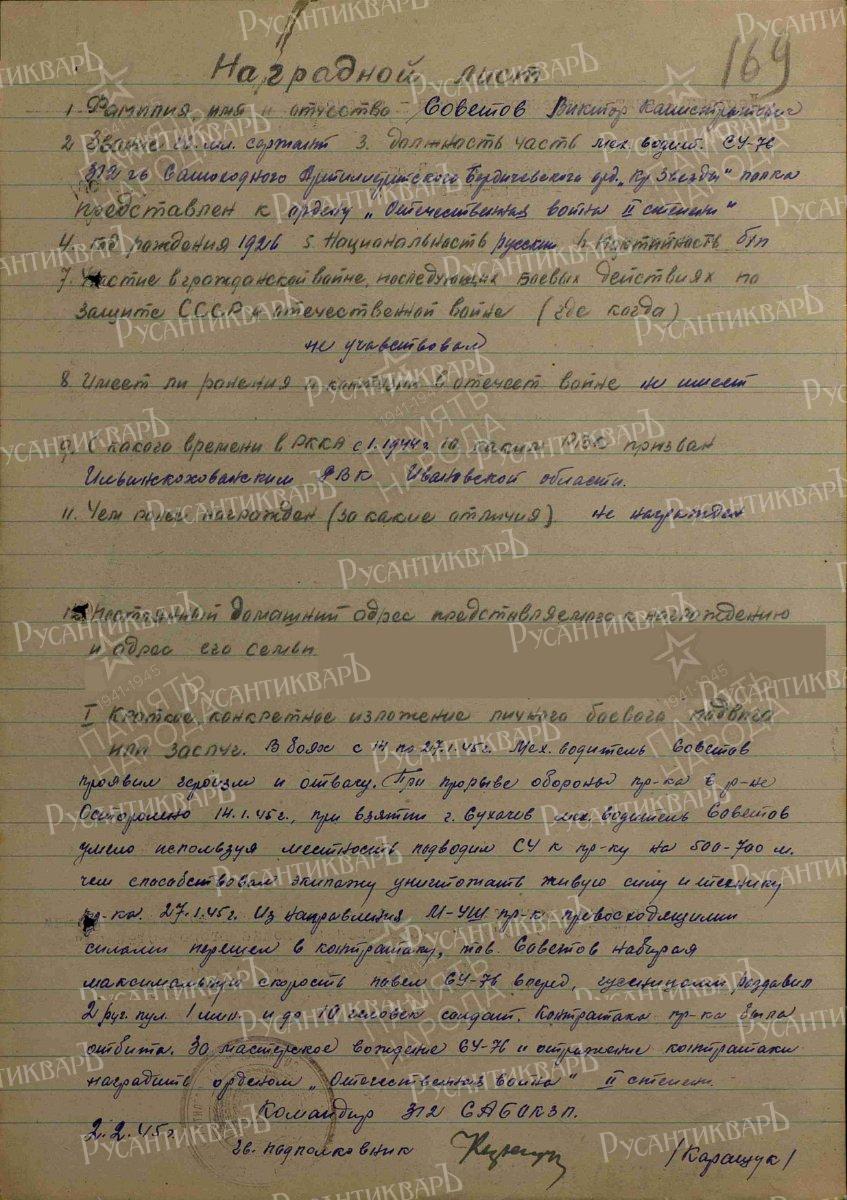 169
Наградной лист
1. Фамилия имя и отчество Советов Виктор Калистратович
2. Звание гв. мл. сержант 3. должность часть мех. водит. СУ-76
312 гв Самоходного Артиллерийского Бердичевского орд. „Кр Звезды" полка
представлен к ордену „Отечественная война II степени"
4. год рождения 1926 5. Национальность русский 6. Партийность б/п
7. Участие в гражданской войне, последующих боевых действиях по
защите СССР и отечественной войне (где когда)
не участвовал
8. Имеет ли ранения и контузии в отечест войне не имеет
9. С какого времени в РККА с 1.1944г 10 каким РВК призван
Ильинхованским РВК Ивановской области.
11. Чем ранее награжден (за какие отличия) не награжден
12. Постоянный домашний адрес представляемого к награждению
и адрес его семьи
I Краткое, конкретное изложение личного боевого подвига
или заслуг. В боях с 14 по 27.1.45г. Мех. водитель Советов
проявил героизм и отвагу. При прорыве обороны пр-ка в р-не
Остроленко 14.1.45г., при взятии г. Сухачев мех. водитель Советов
умело используя местность подводил СУ к пр-ку на 500-700 м.
чем способствовал экипажу уничтожать живую силу и технику
пр-ка. 27.1.45г. Из направления М-УШ пр-к превосходящими
силами перешел в контратаку, тов. Советов набирая
максимальную скорость повел СУ-76 вперед, гусеницами раздавил
2 руч. пул. 1 мин. и до 10 человек солдат. Контратака пр-ка была
отбита. За мастерское вождение СУ-76 и отражение контратаки
наградить орденом „Отечественная война" II степени.
Командир 312 САБОКЗП.
2.2.45г.
гв. подполковник /Каращук/
РусАнтикварЪ
ПАМЯТЬ НАРОДА
1941-1945